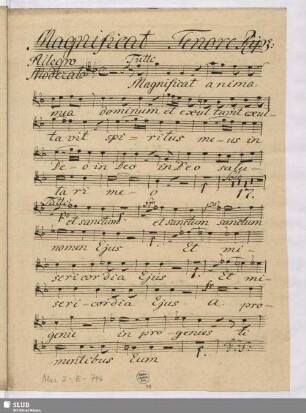 Magnificat Tenore Rip:
Allegro Tutte
Moderato
Magnificat anima
mea dominum et exultavit exul-
tavit spi- ritus me- us in
De- o in Deo in Deo salu
tari me- o 17.
Tutti
et sanctum et sanctum sanctum
nomen Ejus Et mi-
sericordia Ejus Et mi-
seri- cordia Ejus a pro-
genie in progenies ti
mentibus Eum
Mus. 2-E-
SLUB